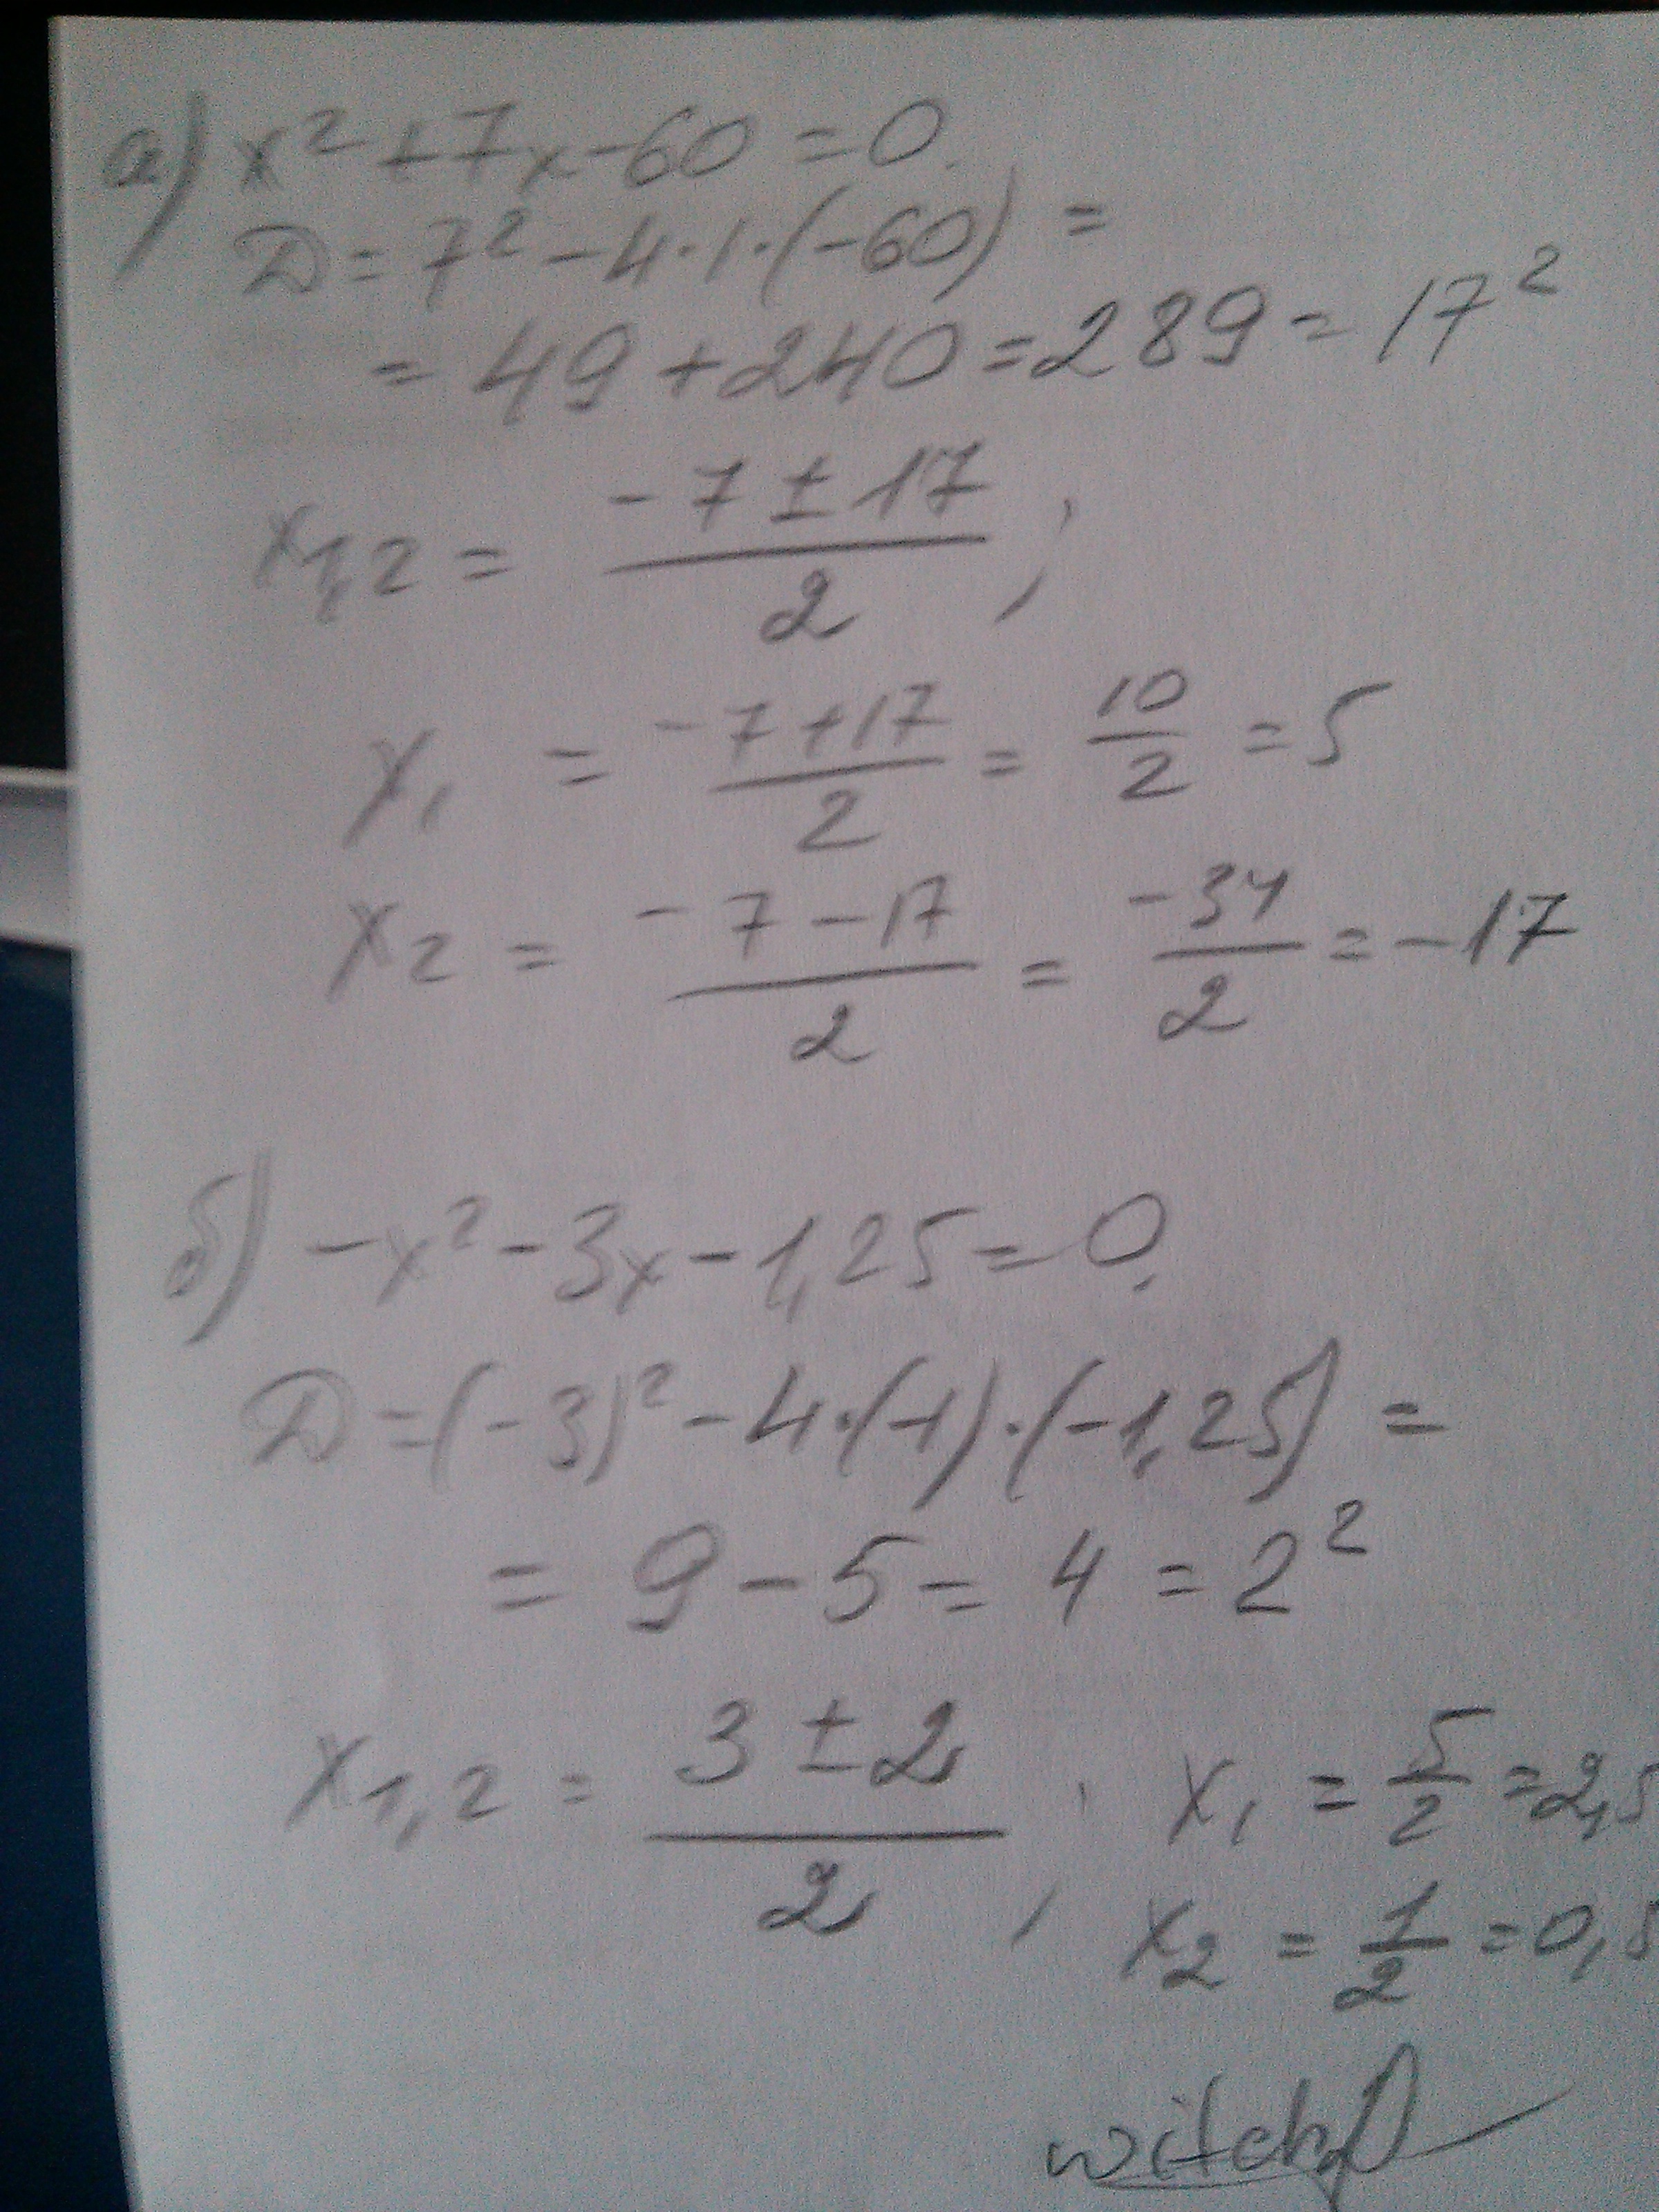 а) x² + 7x - 60 = 0.
D = 7² - 4·1·(-60) =
= 49 + 240 = 289 = 17²
x₁,₂ = (-7 ± 17)/2 ;
x₁ = (-7 + 17)/2 = 10/2 = 5
x₂ = (-7 - 17)/2 = -34/2 = -17
б) -x² - 3x - 1,25 = 0.
D = (-3)² - 4·(-1)·(-1,25) =
= 9 - 5 = 4 = 2²
x₁,₂ = (3 ± 2)/2 ; x₁ = 5/2 = 2,5
x₂ = 1/2 = 0,5